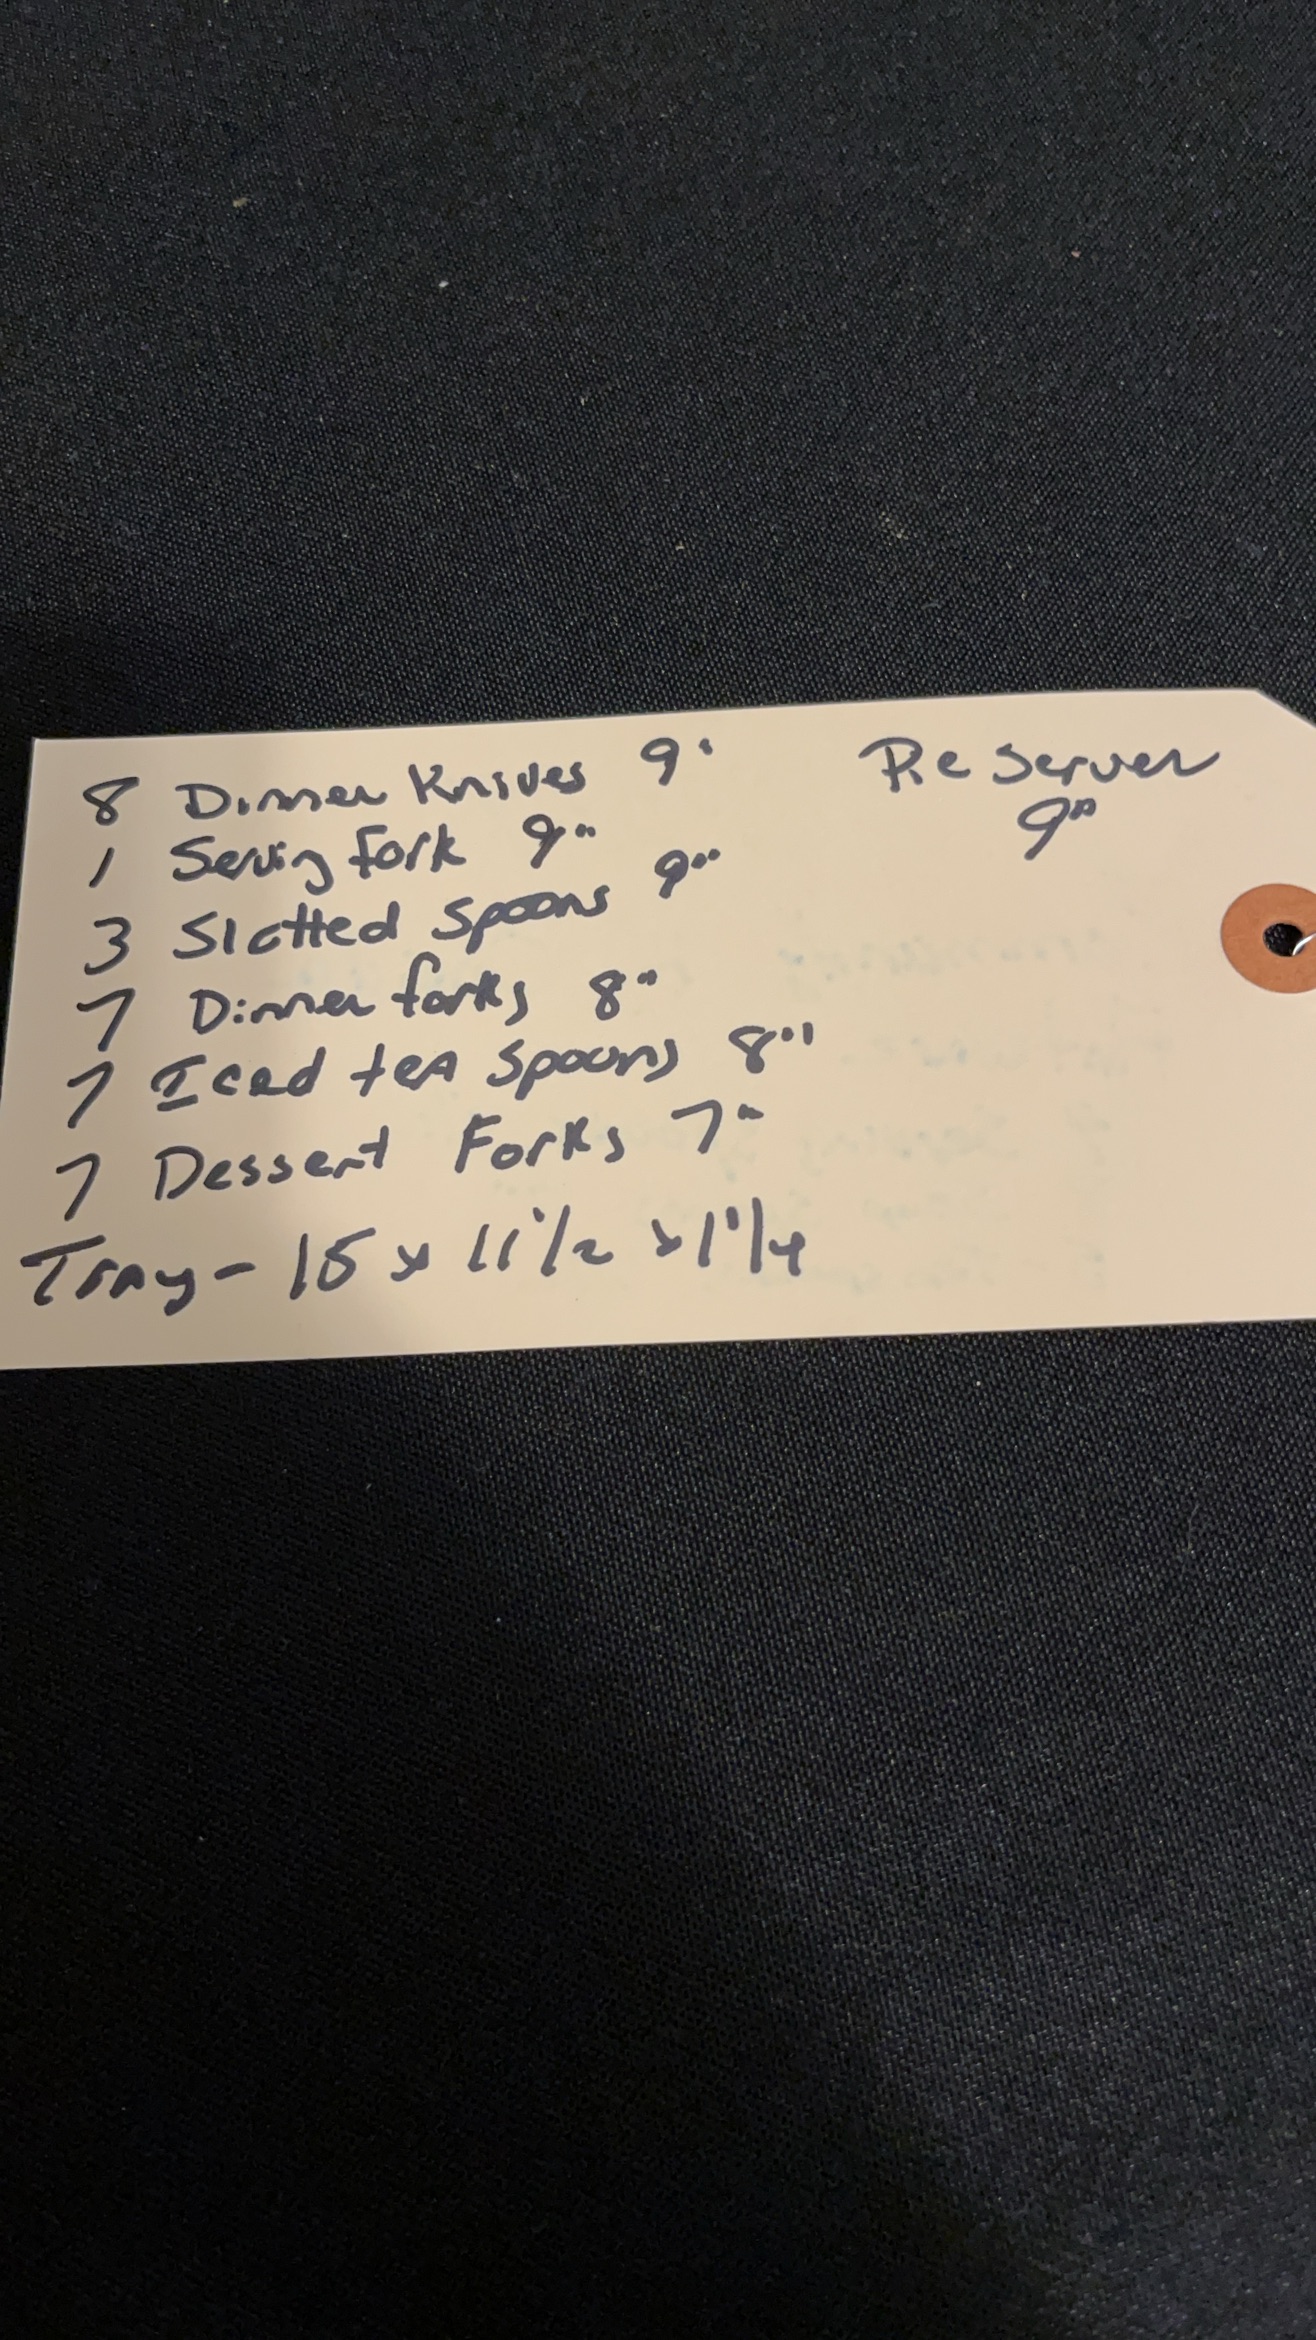 8 Dinner Knives 9"
1 Serving fork 9"
3 Slotted Spoons 9"
7 Dinner forks 8"
7 Iced tea Spoons 8"
7 Dessert Forks 7"
Tray - 15 x 11 1/2 x 1 1/4
Pie Server
9"